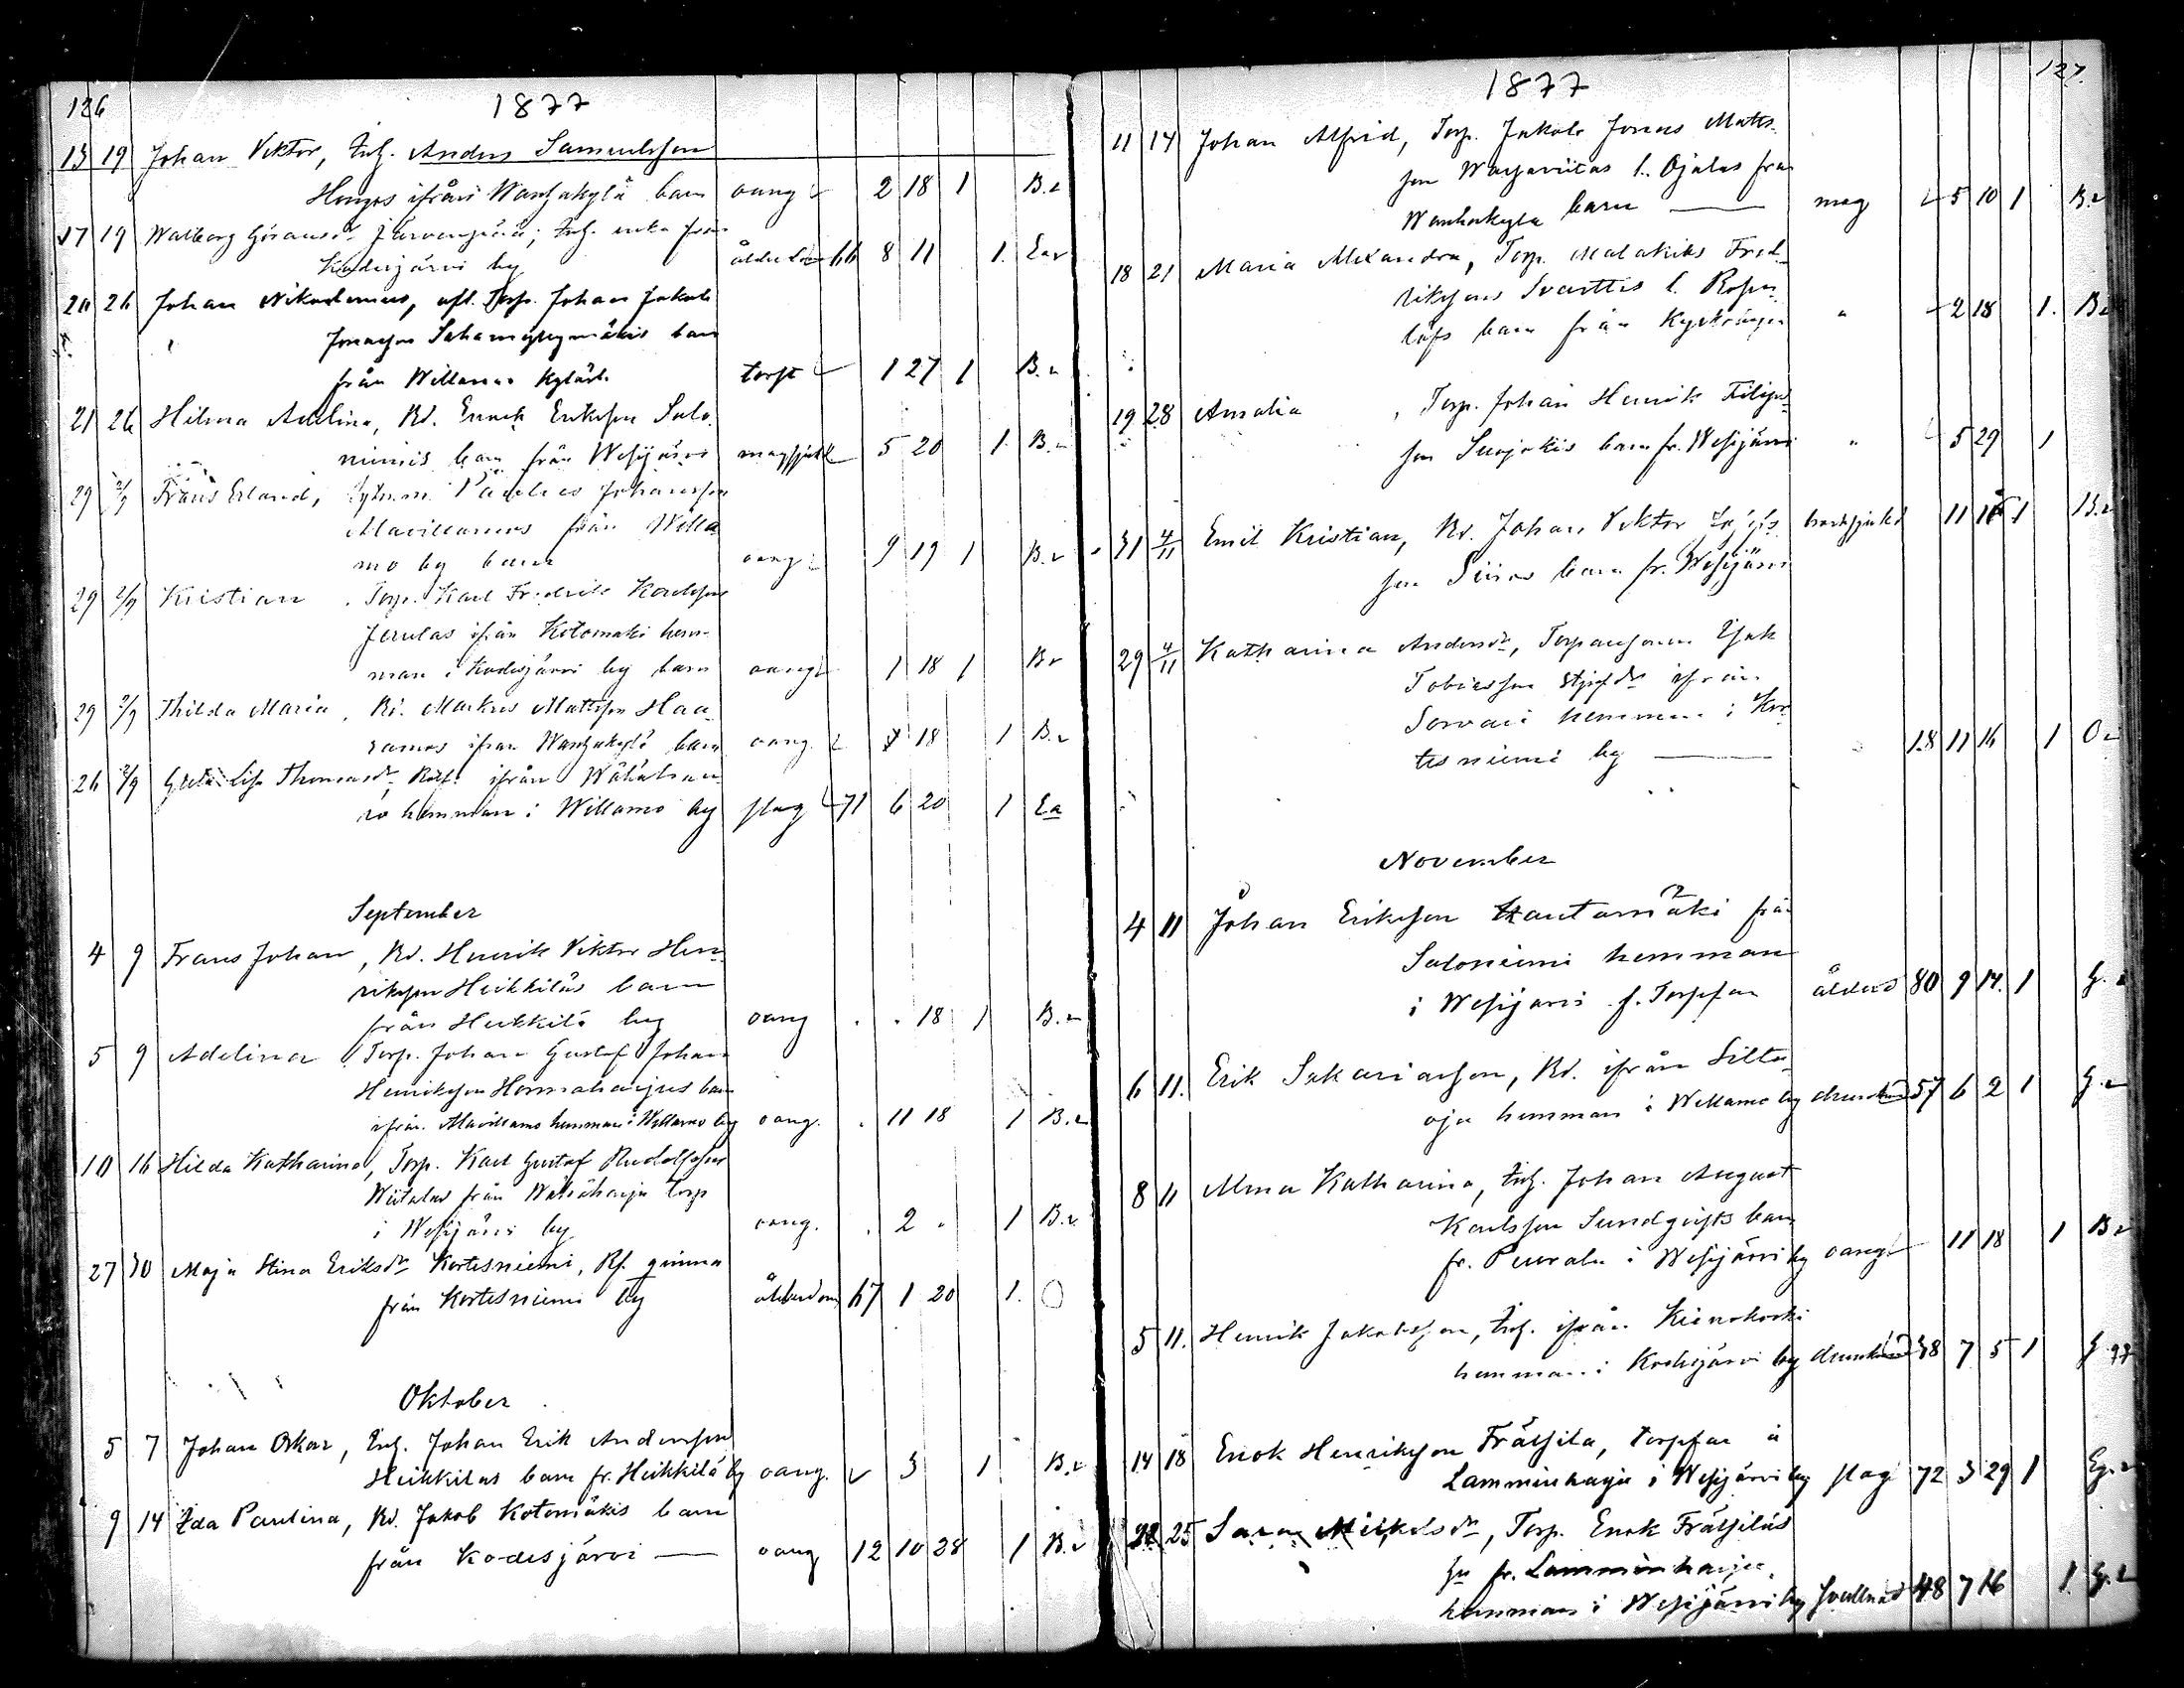 126
1877
13 19 Johan Viktor, Inh. Anders Samuelsson
Honjos ifrån Wanhakylä barn oang 2 18 1 B.
17 19 Walborg Göransdr Järvenpää, Inh. enka från
Kodesjärvi by ålderdom 66 8 11 1. Ea
20 26 Johan Nikodemus, afl. Torp. Johan Jakob
Jonasson barn
från Willamo kylä torsk 1 27 1 B.
21 26 Hilma Adelina, Bd. Enock Eriksson Salo
niemis barn från Wesijärvi magsjukd 5 20 1 B.
29 2/9 Frans Erland, Johansson
Alavillamos från Willa
mo by barn oang 9 19 1 B.
29 2/9 Kristian, Torp. Karl Fredrik Karlsson
Jerulas ifrån Kotomäki hem-
man i Kodesjärvi by barn oang 1 18 1 B
29 2/9 Thilda Maria, Bd. Markus Mattsson Haa-
ramos ifrån Wanhakylä barn oang. 18 1 B.
26 2/9 Greta Lisa Thomasdr, Rotf. ifrån
ro hemman i Willamo by slag 71 6 20 1 Ea
September
4 9 Frans Johan, Bd. Henrik Viktor Hen-
riksson Heikkiläs barn
från Heikkilä by oang . . 18 1 B.
5 9 Adelina, Torp. Johan Gustaf Johan
Henriksson Hormaharjus barn
ifrån Alavillamo hemman i Willamo by oang. . 11 18 1 B.
10 16 Hilda Katharina, Torp. Karl Gustaf Rudolfsson
Wiitalas från Torp
i Wesijärvi by oang. . 2 . 1 B.
27 30 Maja Stina Eriksdr Kortesniemi, Rf. qvinna
från Kortesniemi by ålderdom 67 1 20 1. O
Oktober
5 7 Johan Oskar, Inh. Johan Erik Andersson
Heikkilas barn fr. Heikkilä by oang. 3 1 B.
9 14 Ida Paulina, Bd. Jakob Kotomäkis barn
från Kodesjärvi — oang 12 10 28 1 B.
127.
1877
11 14 Johan Alfrid, Torp. Jakob Jonas Matts-
son l. Ojalas från
Wanhakylä barn — mag 5 10 1 B.
18 21 Maria Alexandra, Torp. Malakias Fred-
rikssons Svarttis l. Rosen-
löfs barn från Kyrkoängen " 2 18 1. B
19 28 Amalia, Torp. Johan Henrik Filips-
son Suojokis barn fr. Wesijärvi " 5 29 1
31 4/11 Emil Kristian, Bd. Johan Viktor
son Siiros barn fr. Wesijärvi bröstsjukd 11 1 B.
29 4/11 Katharina Andersdr, Torparsonen Isak
Tobiasson ifrån
Sorvari hemman i Kor-
tesniemi by — 18 11 16 1 O
November
4 11 Johan Eriksson Hautamäki från
Saloniemi hemman
i Wesijärvi f. Torpare ålderd 80 9 14. 1 G.
6 11. Erik Sakariasson, Bd. ifrån Silta-
oja hemman i Willamo by drunknad 57 6 2 1 G.
8 11 Alma Katharina, Inh. Johan August
Karlsson Sundqvists barn
fr. Peurala i Wesijärvi by oang 11 18 1 B
5 11. Henrik Jakobsson, Inh. ifrån Kirnokoski
hemman i Kodesjärvi by drunknad 38 7 5 1 G
14 18 Enok Henriksson Frätsilä, torpare å
Lamminharju i Wesijärvi by slag 72 3 29 1 Eg.
22 25 Sara Mickelsdr, Torp. Enok Frätsiläs
hu fr. Lamminharju
hemman i Wesijärvi by svullnad 48 7 16 1 G.